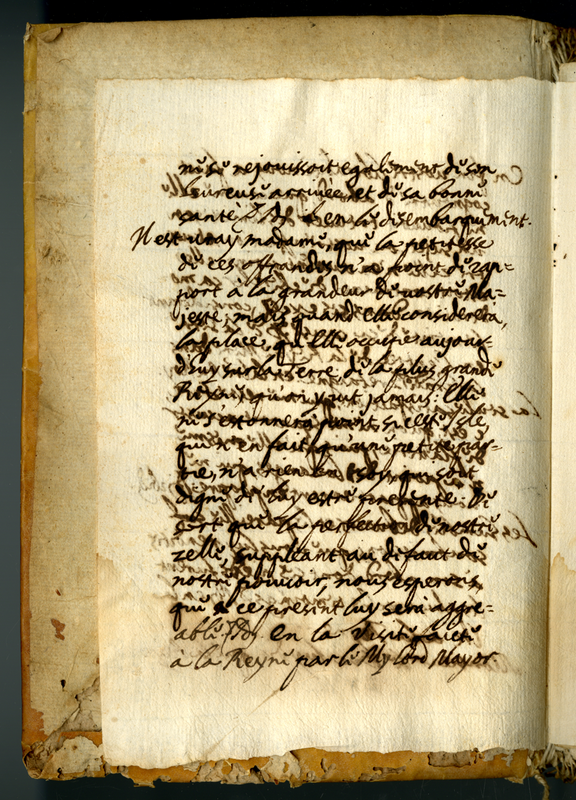 ne se rejouissoit egalement de son
heureuse arrivée, et de sa bonne
sante. Ib. en le disembarquement.
Il est uray madame, que la petitesse
de ces offrandes n'a point de rap=
port à la grandeur de uostre Ma=
iesté, mais quand elle considerera,
la place, qu'Elle occupe aujour=
d'huy sur la Terre, de la plus grande
Reyne, qu'on y uit jamais: Elle
ne s'estonnera point, si ceste Isle,
qui n'en fait qu'une petite par=
tie, n'a rien en soy, qui soit
digne de luy estre presenté. De
sort que la perfection de nostre
zelle, suppleant au defaut de
nostre pouuoir, nous esperons
que ce present luy sera aggre=
able. Ib. en la Visite faicte
à la Reyne par le My lord Mayor.